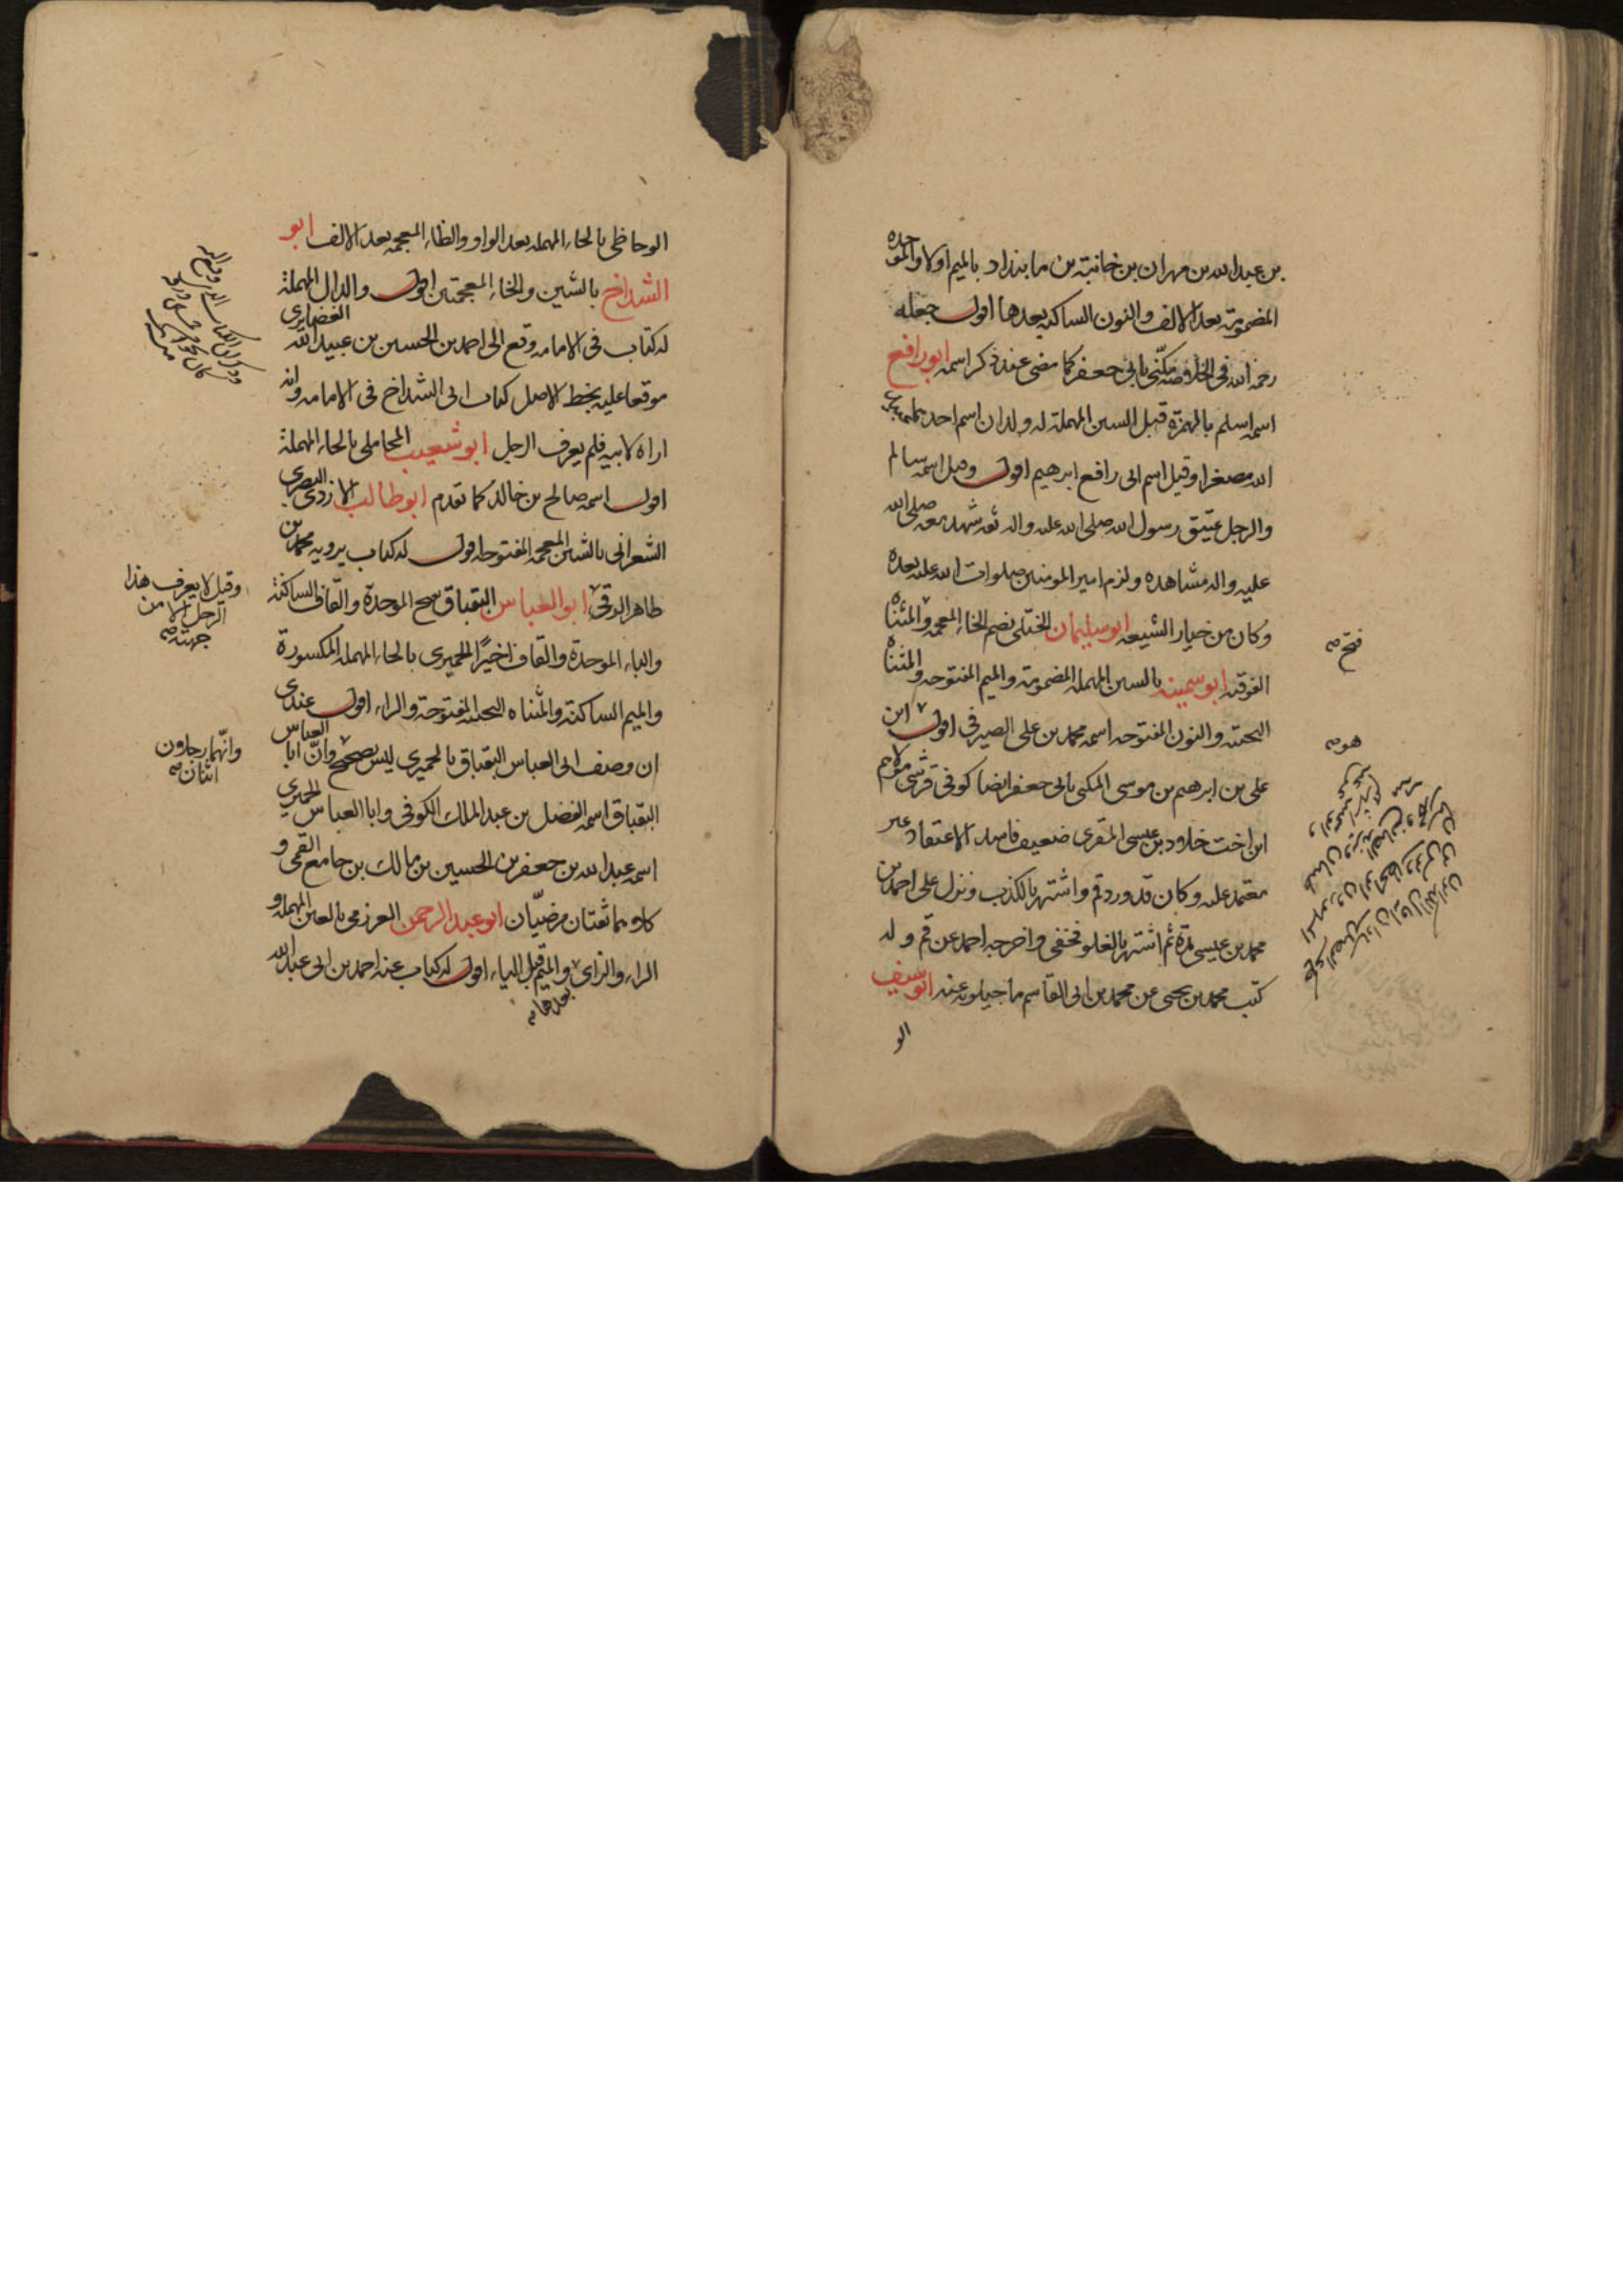 بن عبد الله بن مهران بن خانبة بن ما بنداد بالميم اولا والموحده
المضمومة بعد الالف والنون الساكنه بعدها اقول جعله
رحمه الله فى الخلاصة مكنّى بابى جعفر كما مضى عند ذكر اسمه ابو رافع
اسمه اسلم بالهمزة قبل السين المهملة له ولدان اسم احدهما عبيد
الله مصغرا وقيل اسم ابى رافع ابرهيم اقول وقيل اسمه سالم
والرجل عتيق رسول الله صلى الله عليه واله ثقه شهد معه صلى الله
عليه واله مشاهده ولزم امير المومنين صلوات الله عليه بعده
وكان من خيار الشيعه ابو سليمان الختلى بضم الخاء المعجمه والمثناه
الفوقيه ابو سمينه بالسين المهملة المضمومة والميم المفتوحه والمثناه
التحتيه والنون المفتوحه اسمه محمد بن على الصيرفى اقول ابن
على بن ابرهيم بن موسى المكنى بابى جعفر ايضا كوفى قرشى مولاهم
ابن اخت خلاد بن عيسى المقرى ضعيف فاسد الاعتقاد غير
معتمد عليه وكان قد ورد قم واشتهر بالكذب ونزل على احمد بن
محمد بن عيسى مدة ثم اشتهر بالغلو فخفى واخرجه احمد عن قم وله
كتب محمد بن يحيى عن محمد بن ابى القاسم ماجيلويه عنه ابو سيف
الو
فتح صح
هو صح
الوحاظى بالحاء المهمله بعد الواو والظاء المعجمه بعد الالف ابو
الشداخ بالشين والخاء المعجمتين اقول والدال المهملة
له كتاب فى الامامه وقع الى احمد بن الحسين بن عبيد الله الغضايرى
موقعا عليه بخط الاصل كتاب ابى الشداخ فى الامامه وانه
اراه لابيه فلم يعرف الرجل ابو شعيب المحاملى بالحاء المهملة
اقول اسمه صالح بن خالد كما تقدم ابو طالب الازدى البصرى
الشعرانى بالشين المعجمه المفتوحه اقول له كتاب يرويه محمد بن
طاهر الوقى ابو العباس البقباق بفتح الموحدة والقاف الساكنة
والباء الموحدة والقاف اخيرًا الحميرى بالحاء المهمله المكسورة
والميم الساكنة والمثناه التحتيه المفتوحة والراء اقول عندى
ان وصف ابى العباس البقباق بالحميرى ليس بصحيح وانّ ابا العباس
البقباق اسمه الفضل بن عبد الملك الكوفى وابا العباس الحميرى
اسمه عبد الله بن جعفر بن الحسين بن مالك بن جامع القمى و
كلاهما ثقتان مرضيّان ابو عبد الرحمن العرزمى بالعين المهمله و
الراء والزاى والميم قبل الياء اقول له كتاب عنه احمد بن ابى عبد الله
بعدها صح
وقيل لا يعرف هذا
الرجل الا من
جهته صح
وانّهما رجلان
اثنان صح